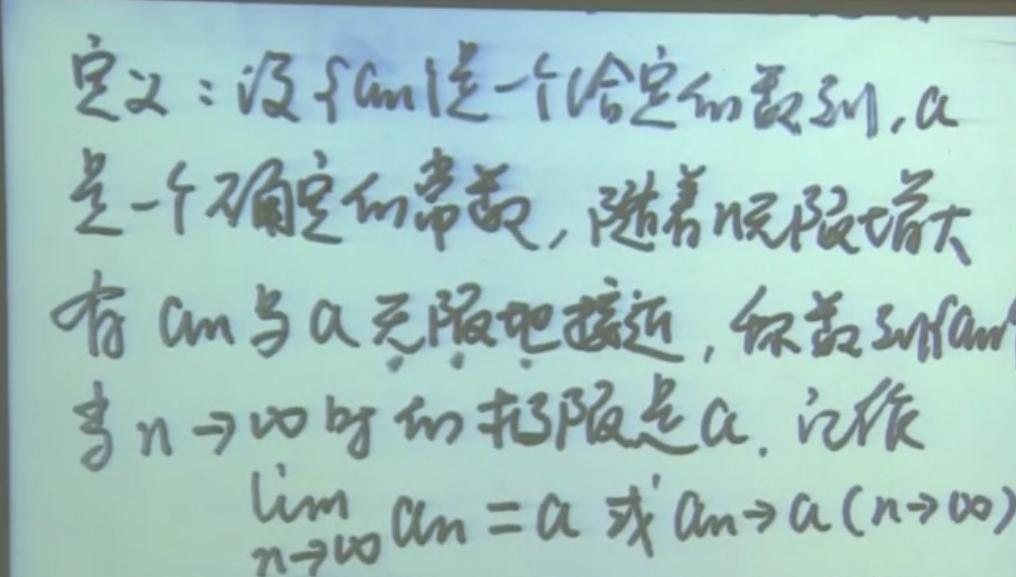 定义：设{an}是一个给定的数列，a
是一个确定的常数，随着n无限增大
有 an 与 a 无限地接近，称数列{an}
当 n→∞ 时的极限是a. 记作
lim n→∞ an = a 或 an→a (n→∞)